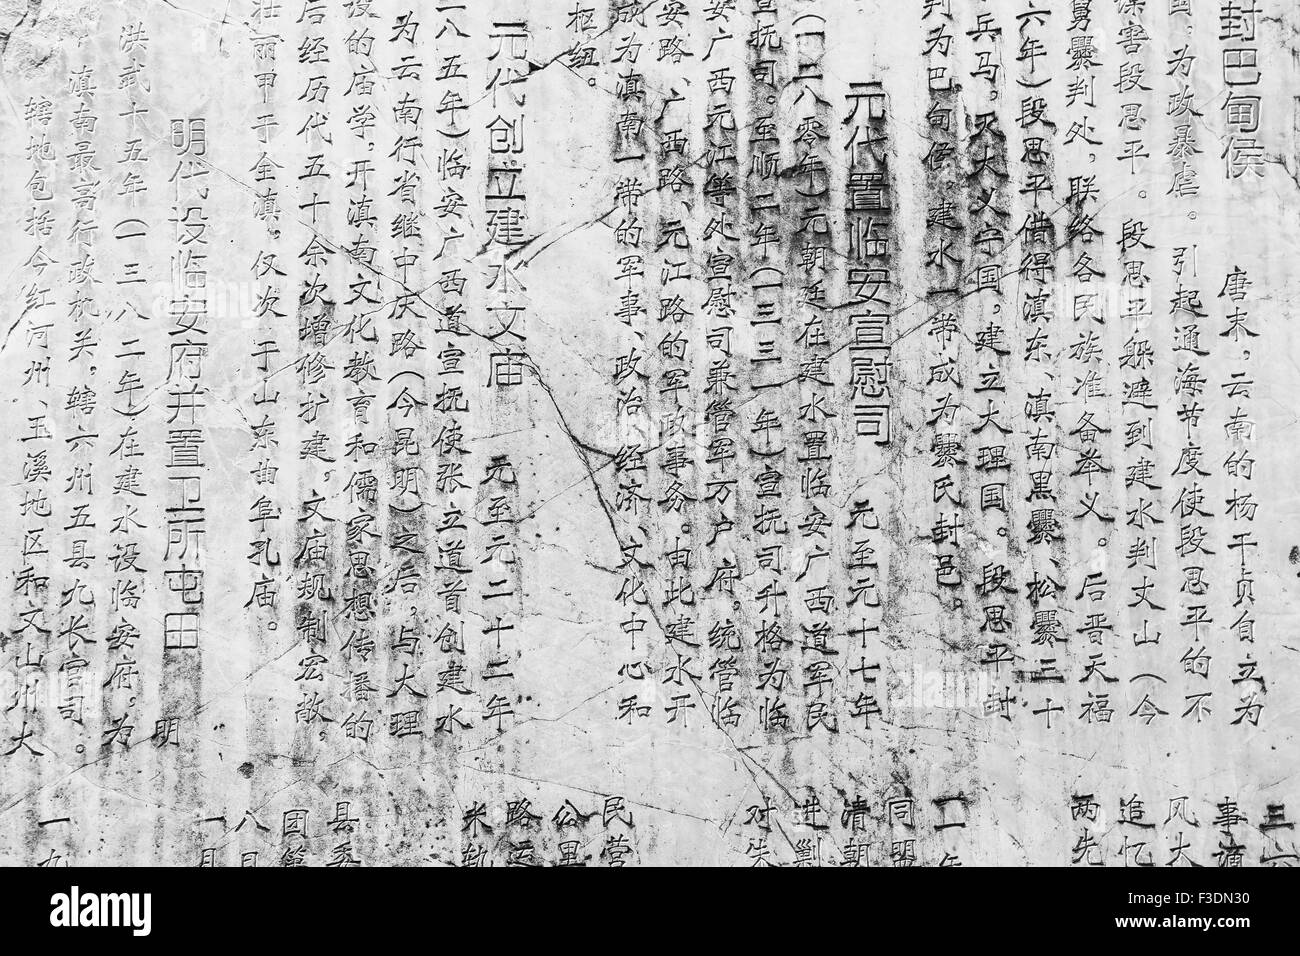 封巴甸侯　唐末,云南的杨干贞自立为
国,为政暴虐。引起通海节度使段思平的不
谋害段思平。段思平躲避到建水判丈山(今
舅爨判处,联络各民族准备举义。后晋天福
六年)段思平借得滇东、滇南黑爨、松爨三十
兵马。灭大义宁国,建立大理国。段思平封
判为巴甸侯。建水一带成为爨氏封邑。
元代置临安宣慰司　元至元十七年
(一二八零年)元朝廷在建水置临安广西道军民
宣抚司。至顺二年(一三三一年)宣抚司升格为临
安广西元江等处宣慰司兼管军万户府,统管临
安路、广西路、元江路的军政事务。由此建水开
成为滇南一带的军事、政治、经济、文化中心和
枢纽。
元代创立建水文庙　元至元二十二年
二八五年)临安广西道宣抚使张立道首创建水
为云南行省继中庆路(今昆明)之后,与大理
设的庙学,开滇南文化教育和儒家思想传播的
后经历代五十余次增修扩建,文庙规制宏敞,
壮丽甲于全滇,仅次于山东曲阜孔庙。
明代设临安府并置卫所屯田　明
洪武十五年(一三八二年)在建水设临安府,为
滇南最高行政机关,辖六州五县九长官司。
辖地包括今红河州、玉溪地区和文山州大
三
事
风大
追忆
两先
年
同盟
清朝
进剿
对
民营
公里
路运
米轨
县委
团
八月
一月
一九
alamy
Image ID: F3DN30
www.alamy.com